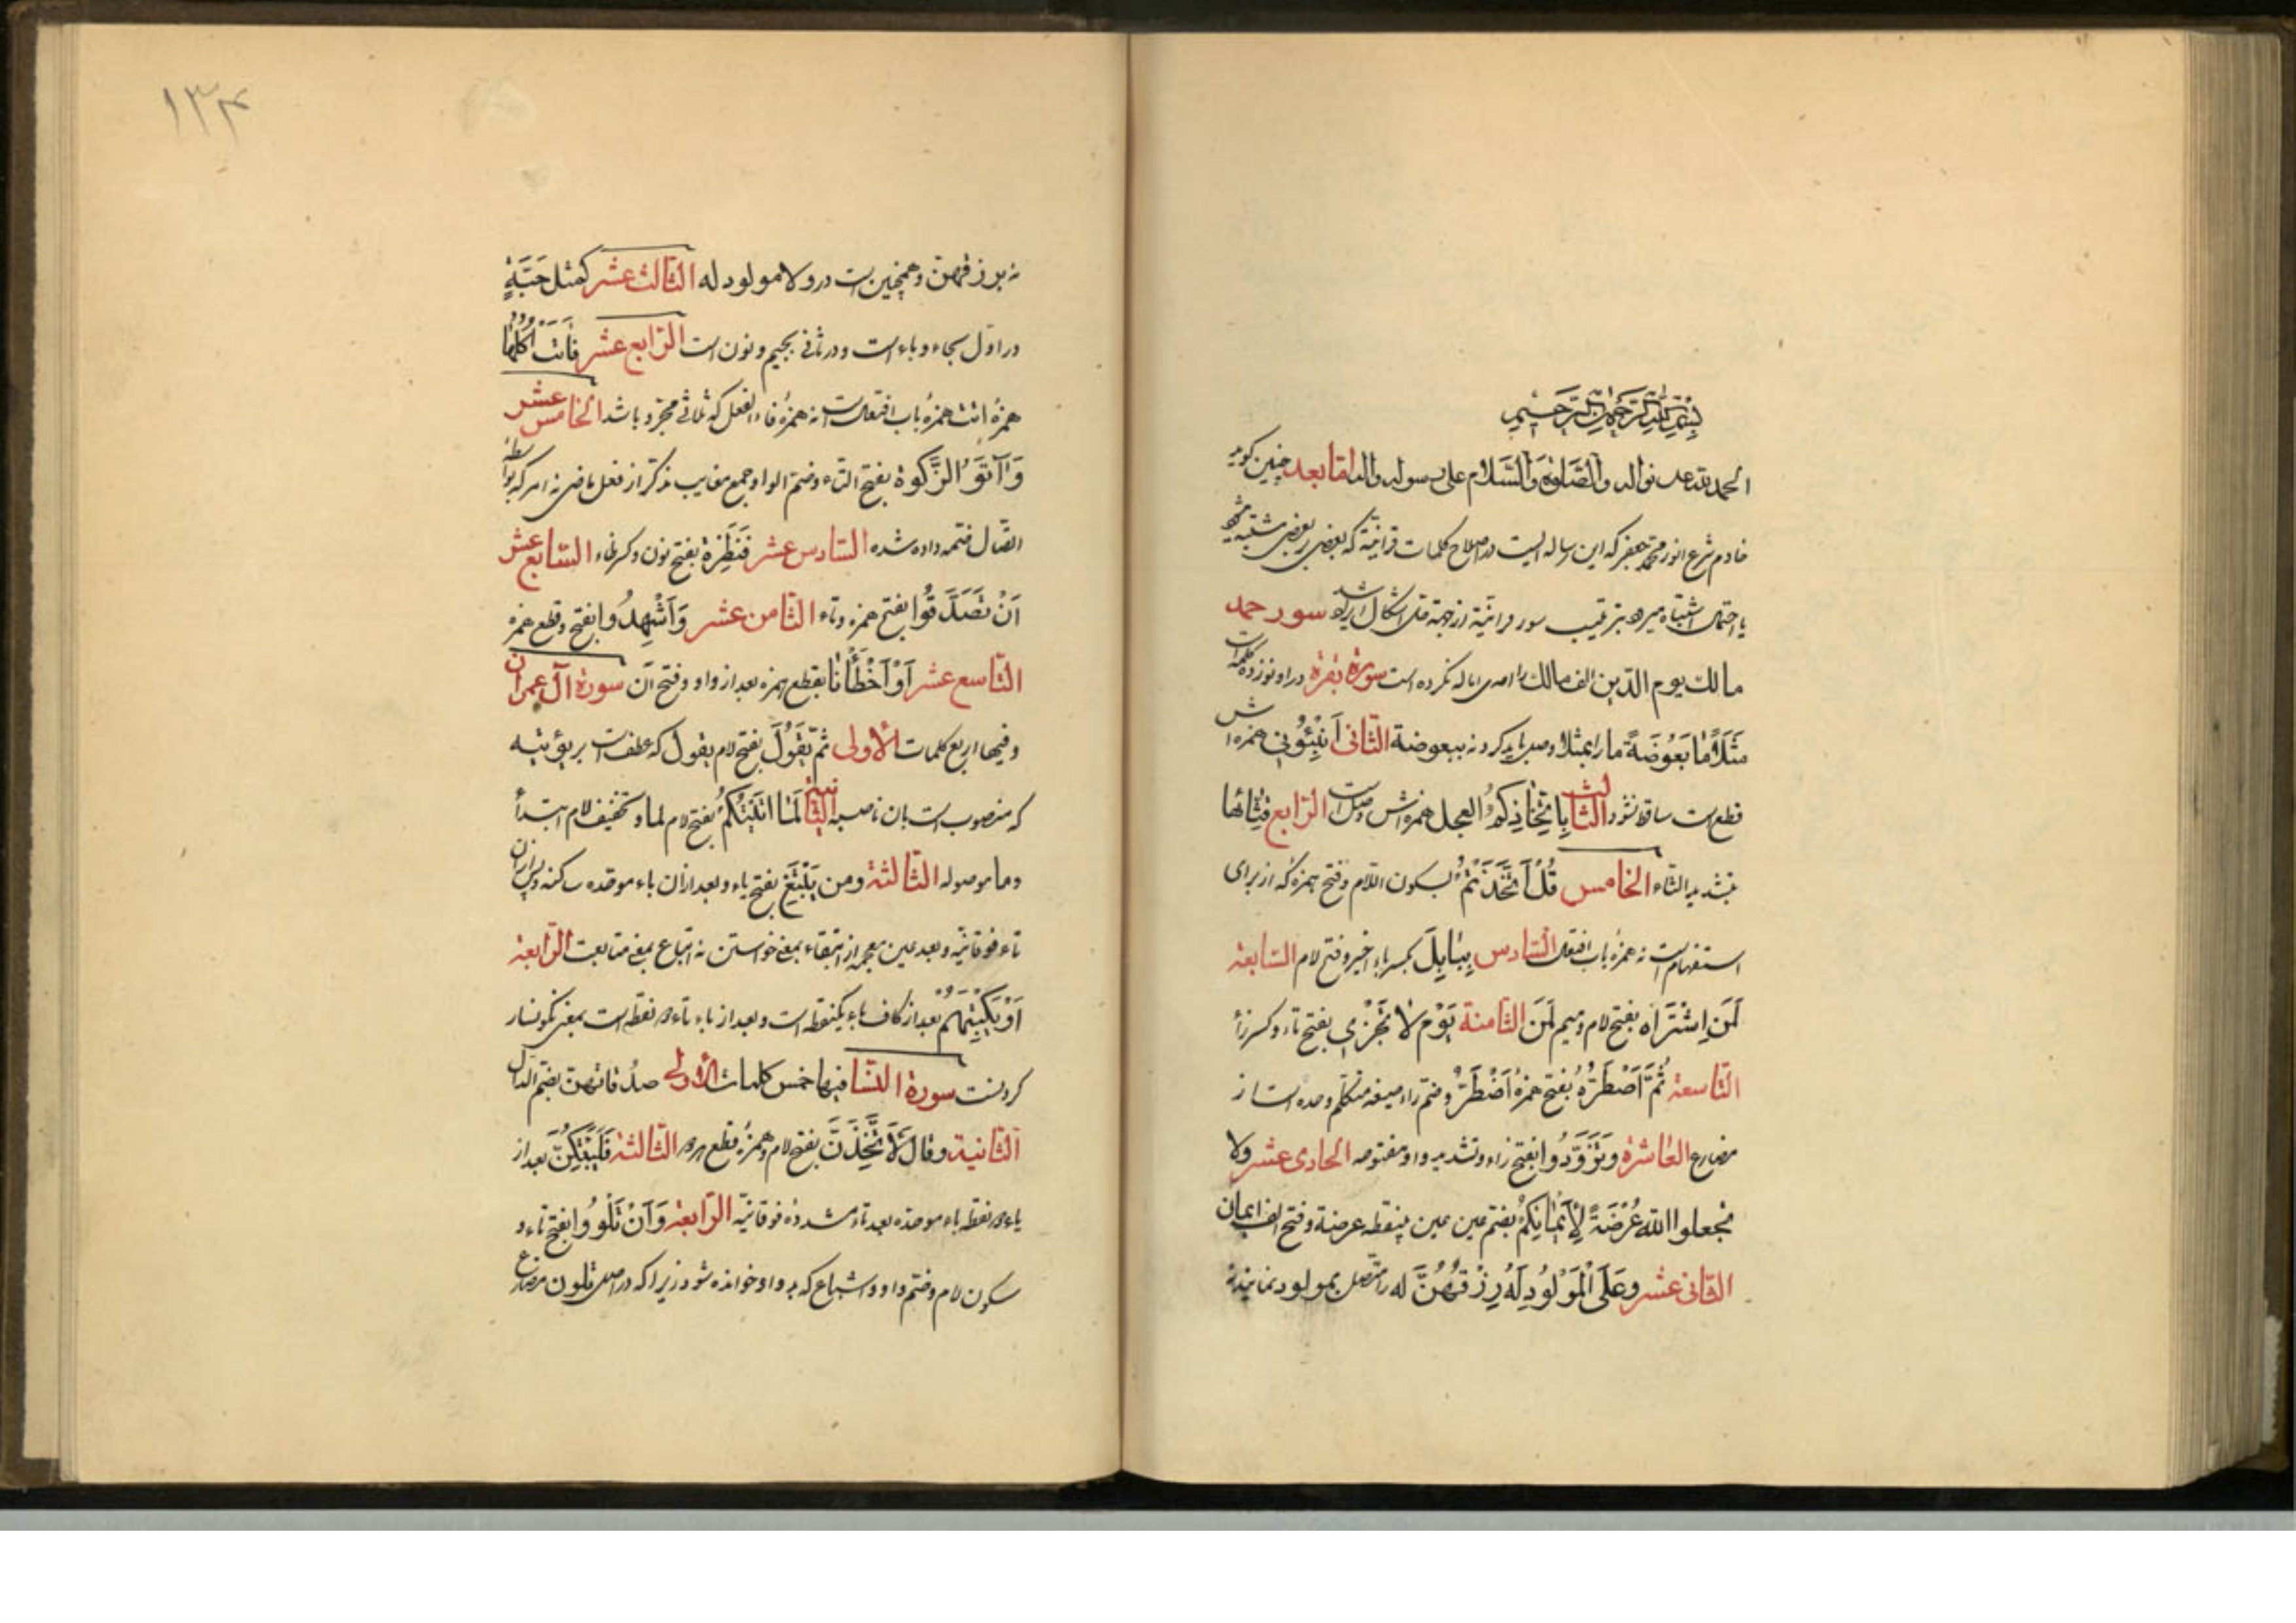 بسم الله الرحمن الرحیم
الحمد لله علی نواله والصلوة والسلام علی رسوله واله اما بعد چنین کوید
خادم شرع انور محمد جعفر که این رساله ایست در اصلاح کلمات قرانیّة که بعضی ببعضی مشتبه میشود
یا احتمال اشتباه میرود بترتیب سور قرانیّة از جهة اشکال سوره حمد
مالك یوم الدّین الف مالك را امالە نکرده است سورة بقرة در او نوزده کلمه است
مَثَلًا مٰا بَعُوضَةً ما را بمثلا وصل باید کرد نه ببعوضة الثّانی اَنْبِئُونی همزه اش
قطع است ساقط نشود الثالث بِاتِّخٰاذِکُمُ العجل همزه اش وصل است الرّابع قِثّائها
بتشدید الثاء الخامس قُلْ اَتَّخَذْتُمْ بسکون اللّام وفتح همزه که از برای
استفهام است نه همزهٔ باب افتعال السّادس بِبٰابِلَ بکسر باء اخیر وفتح لام السّابعة
لَمَنِ اشْتَرٰاه بفتح لام ومیم لَمَن الثّامنة یَوْم لٰا تَجْزی بفتح تاء وکسر زاء
التّاسعة ثُمَّ اَضْطَرُّهُ بفتح همزهٔ اَضْطَرُّ وضم راء صیغهٔ متکلّم وحده است از
مضارع العٰاشرة وتَزَوَّدُوا بفتح زاء وتشدید واو مفتوحه الحادی عشر ولا
تجعلوا الله عُرْضَةً لِاَیْمٰانِکُمْ بضم عین بینقطه عرضة وفتح الف ایمان
الثّانی عشر وعَلَی الْمَوْلُودِ لَهُ رِزْقُهُنَّ له را متصل بمولود نمایند
نه برزقهنّ وهمچنین است در ولا مولود له الثّالث عشر کمثل حَبَّةٍ
در اوّل بحاء وباء است ودر ثانی بجیم ونون است الرّابع عشر فَاٰتَتْ اُکُلَهٰا
همزهٔ اتت همزهٔ باب افعال است نه همزهٔ فاء الفعل که ثلاثی مجرّد باشد الخامس عشر
وَآتَوُا الزَّکوة بفتح التّاء وضمّ الواو جمع مغایب مذکّر از فعل ماضی نه امر که بواسطه
اتّصال ضمّه داده شده السّادس عشر فَنَظِرَة بفتح نون وکسر ظاء السّابع عشر
اَنْ تَصَدَّقُوا بفتح همزه وتاء الثّامن عشر وَاَشْهِدُوا بفتح وقطع همزه
التّاسع عشر اَوْ اَخْطَأْنٰا بقطع همزه بعد از واو وفتح آن سورة آل عمران
وفیها اربع کلمات الاُولی ثُمَّ یَقُولَ بفتح لام یقول که عطف است بر یؤتیه
که منصوب است بان ناصبه الثانیة لَمٰا اٰتَیْتُکُمْ بفتح لام لما وتخفیف لام ابتدأ
وما موصوله الثّالثة ومن یَبْتَغِ بفتح یاء وبعد از آن باء موحّده ساکنه وپس از آن
تاء فوقانیّه وبعد غین معجمه از ابتغاء بمعنی خواستن نه اتباع بمعنی متابعت الرّابعة
اَوْ یَکْبِتَهُمْ بعد از کاف باء یکنقطه است وبعد از باء تاء دو نقطه است بمعنی نکونسار
کردنست سورة النسا فیها خمس کلمات الاُولی صدُقاتهنّ بضمّ الدال
الثّانیة وقال لَاَتَّخِذَنَّ بفتح لام وهمزهٔ قطع الثّالثة فَلَیُبَتِّکُنَّ بعد از
یاء دو نقطه باء موحّده بعد تاء مشدّدهٔ فوقانیّه الرّابعة وَاَنْ تَلْوُوا بفتح تاء و
سکون لام وضمّ واو واشباع که بدو واو خوانده شود زیرا که در اصل تلوون مضارع
۱۳۴